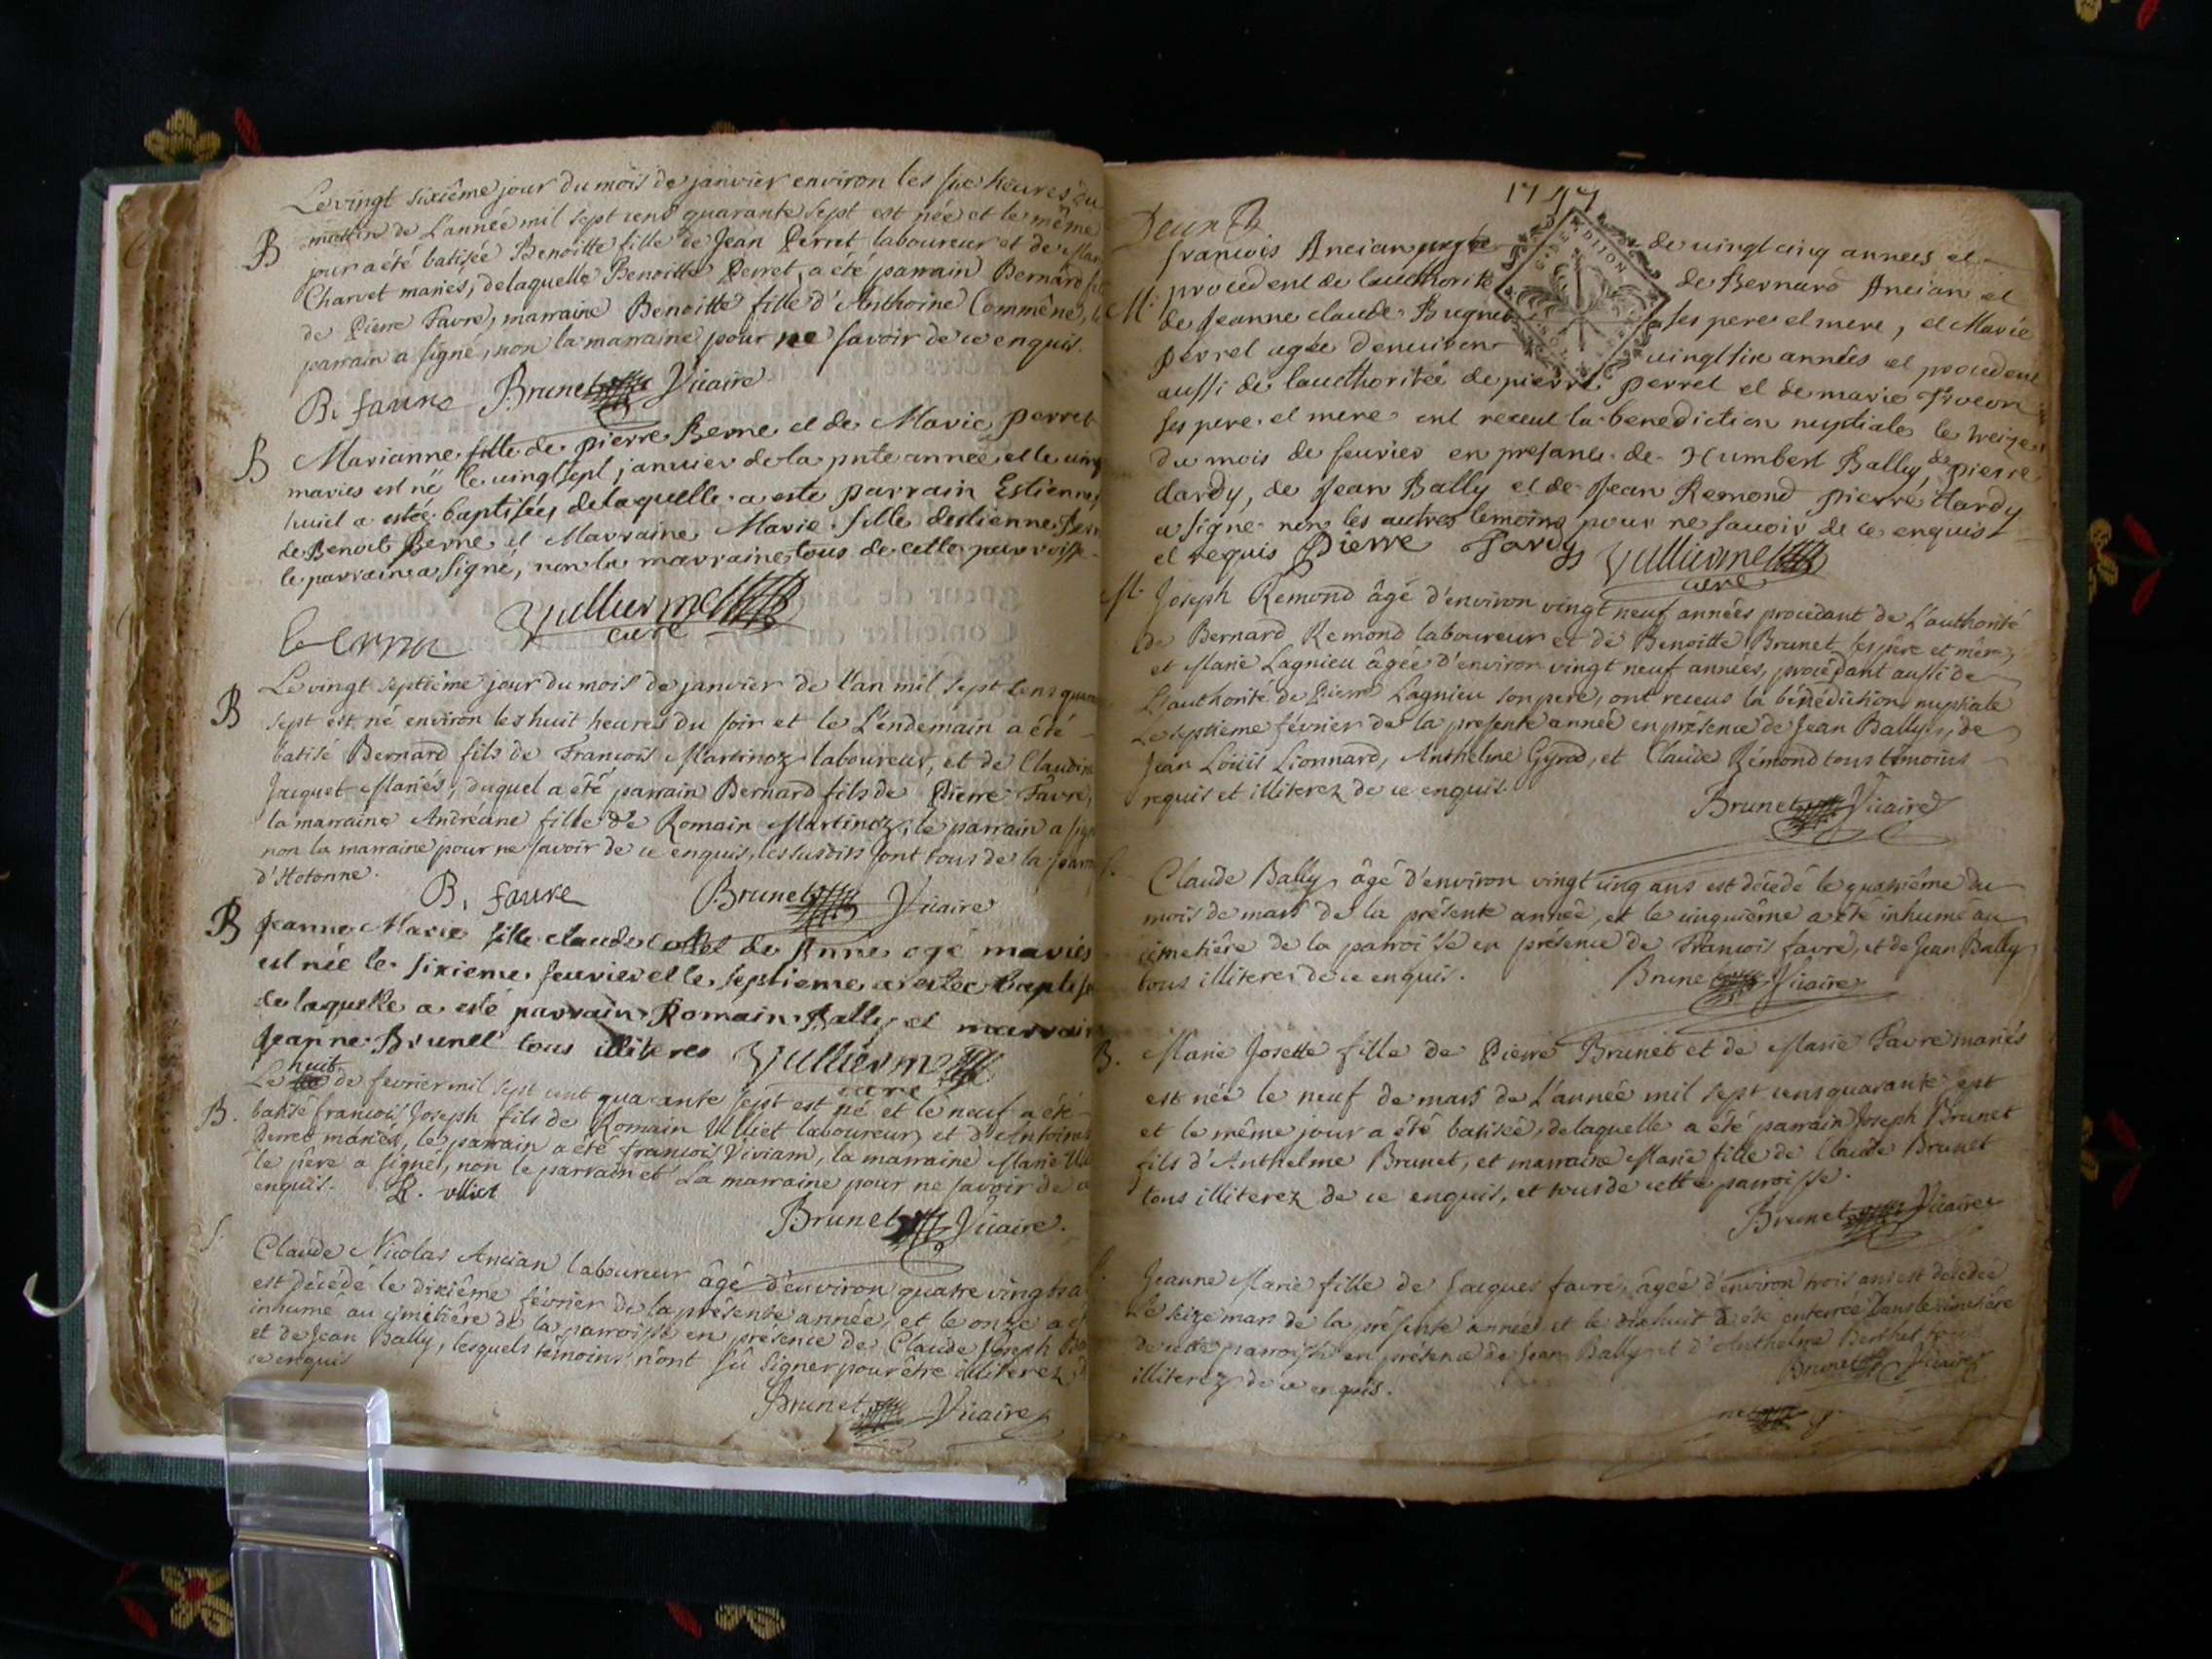 Le vingt sixiême jour du mois de janvier environ les six heures du
matin de L'année mil sept cens quarante sept est née et le même
B jour a été batisée Benoitte fille de Jean Perret laboureur et de
Charvet mariés, de laquelle Benoitte Perret, a été parrain Bernard
de Pierre Favre, marraine Benoitte fille d'Anthoine Commêne,
parrain a signé, non la marraine pour ne savoir de ce enquis.
B. faure Brunet Vicaire
B Marianne fille de pierre Berne et de Marie perret
maries est né le vingt sept janvier de la pnte année et le
huict a estée baptisées de laquelle a esté parrain Estienne
de Benoit Berne et Marraine Marie fille destienne
le parrain a signé, non la marraine tous de cette parroisse
Vulliermet
curé
Le vingt septiéme jour du mois de janvier de l'an mil sept cens
B sept est né environ les huit heures du soir et le L'endemain a été
batisé Bernard fils de Francois Martinoz laboureur, et de Claudine
Jacquet Mariés, duquel a été parrain Bernard fils de Pierre Favre,
la marraine Andréane fille de Romain Martinoz, le parrain a
non la marraine pour ne savoir de ce enquis, les susdits sont tous de la
d'Hotonne.
B. faure Brunet Vicaire
B Jeanne Marie fille claude et de Anne ogé mariés
est née le sixieme fevrier et le septieme a estée
de laquelle a esté parrain Romain Bally et
Jeanne Brunet tous illiteres Vulliermet
curé
huit
Le de fevrier mil sept cent quarante sept est né et le neuf a été
B. batisé francois Joseph fils de Romain Ulliet laboureur, et d'Antoine
Perret mariés, le parrain a été francois Viviam, la marraine Marie
le père a signé, non le parrain et La marraine pour ne savoir de
enquis. R. ulliet
Brunet Vicaire.
S. Claude Nicolas Ancian laboureur âgé d'environ quatre vingt
est décédé le dixiême février de la présente année, et le onze a
inhumé au cimetiêre de la parroisse en présence de Claude Joseph
et de Jean Bally, lesquels témoins n'ont sû signer pour être illiterez
ce enquis
Brunet Vicaire
1747
Deux
DIJON
francois Ancian de vingt cinq annees et
M. procedent de lauthorite de Bernard Ancian et
de Jeanne claude Bugnet ses pere et mere, et Marie
perret agée denviron vingt six années et procedent
aussi de lauthoritée de pierre perret et de marie
ses pere et mere ont receut la benediction nuptiale le treize
du mois de fevrier en presance de Humbert Bally, de pierre
tardy, de Jean Bally et de Jean Remond pierre tardy
a signé non les autres temoins pour ne savoir de ce enquis
et requis Pierre Tardy Vulliermet
curé
M. Joseph Remond âgé d'environ vingt neuf années procedant de L'authorité
de Bernard Remond laboureur et de Benoitte Brunet ses pere et mere,
et Marie Lagnieu âgée d'environ vingt neuf années, procédant aussi de
L'authorité de Pierre Lagnieu son pere, ont receus la bénédiction nuptiale
Le septieme février de la presente année en présence de Jean Bally, de
Jean Loüis Lionnard, Anthelme Gyrod, et Claude Rémond tous témoins
requis et illiterez de ce enquis.
Brunet Vicaire
Claude Bally âgé d'environ vingt cinq ans est décedé le quatriéme du
mois de mars de la présente année, et le cinquiéme a été inhumé au
cimetiêre de la parroisse en présence de Francois favre, et de Jean Bally
tous illiterés de ce enquis. Brunet Vicaire
B. Marie Josette fille de Pierre Brunet et de Marie Favre mariés
est née le neuf de mars de L'année mil sept cens quarante sept
et le même jour a été batisée, de laquelle a été parrain Joseph Brunet
fils d'Anthelme Brunet, et marraine Marie fille de Claude Brunet
tous illiterez de ce enquis, et tous de cette parroisse.
Brunet Vicaire
Jeanne Marie fille de Jacques favre, âgée d'environ trois ans est decedée
Le seize mars de la présente année et le dixhuit a été enterrée dans le cimetiére
de cette parroisse en présence de Jean Bally et d'Anthelme Berthet tous
illiterez de ce enquis. Brunet Vicaire